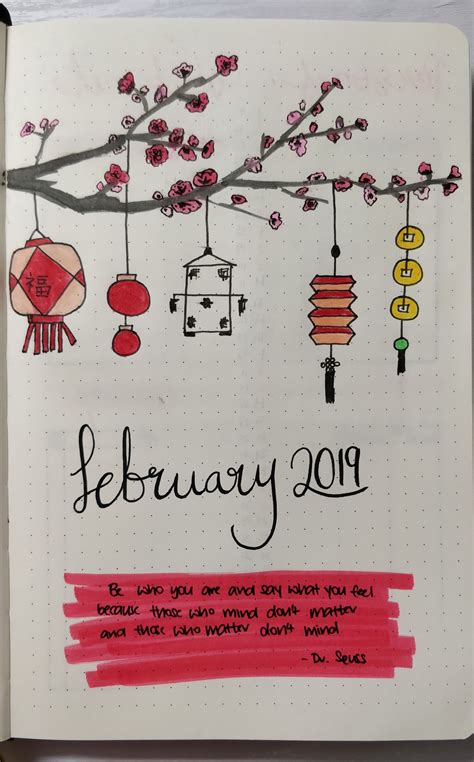 福
february 2019
Be who you are and say what you feel
because those who mind don't matter
and those who matter don't mind
- Dr. Seuss